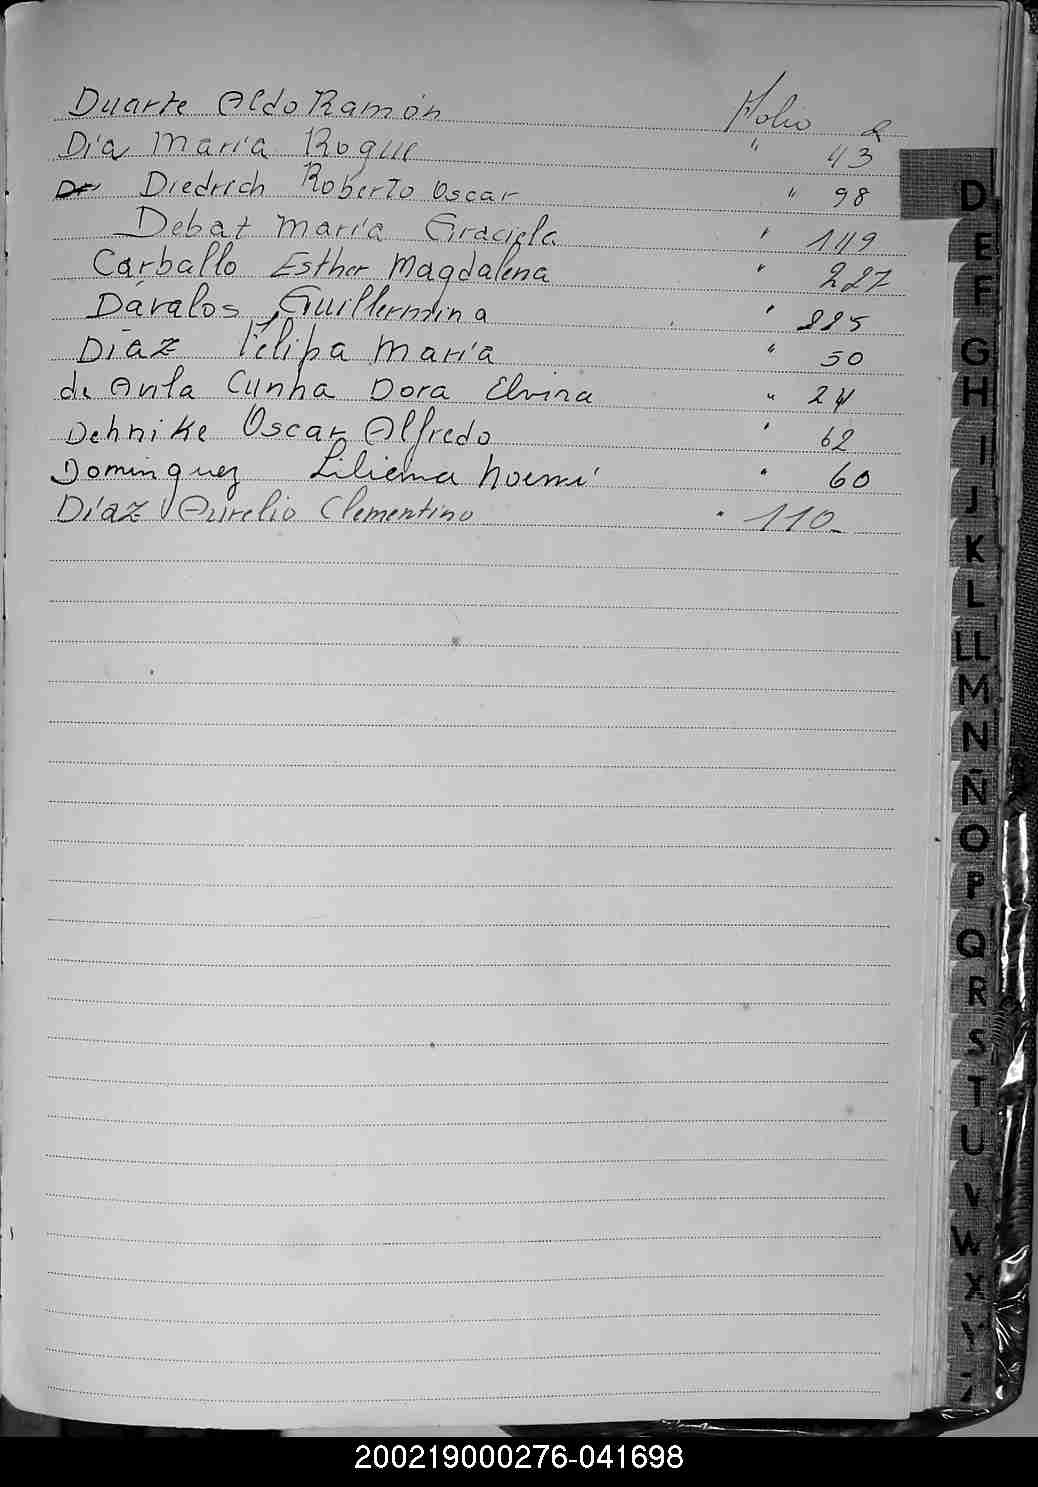 Duarte Aldo Ramón Folio 2
Día María Roque " 43
Diedrich Roberto Oscar " 98
Debat María Graciela " 149
Carballo Esther Magdalena " 227
Dávalos Guillermina " 225
Díaz Felipa María " 50
de Avila Cunha Dora Elvira " 24
Dehnike Oscar Alfredo " 62
Dominguez Liliana Noemí " 60
Díaz Aurelio Clementino " 110
D
E
F
G
H
I
J
K
L
LL
M
N
Ñ
O
P
Q
R
S
T
U
V
W
X
Y
Z
200219000276-041698